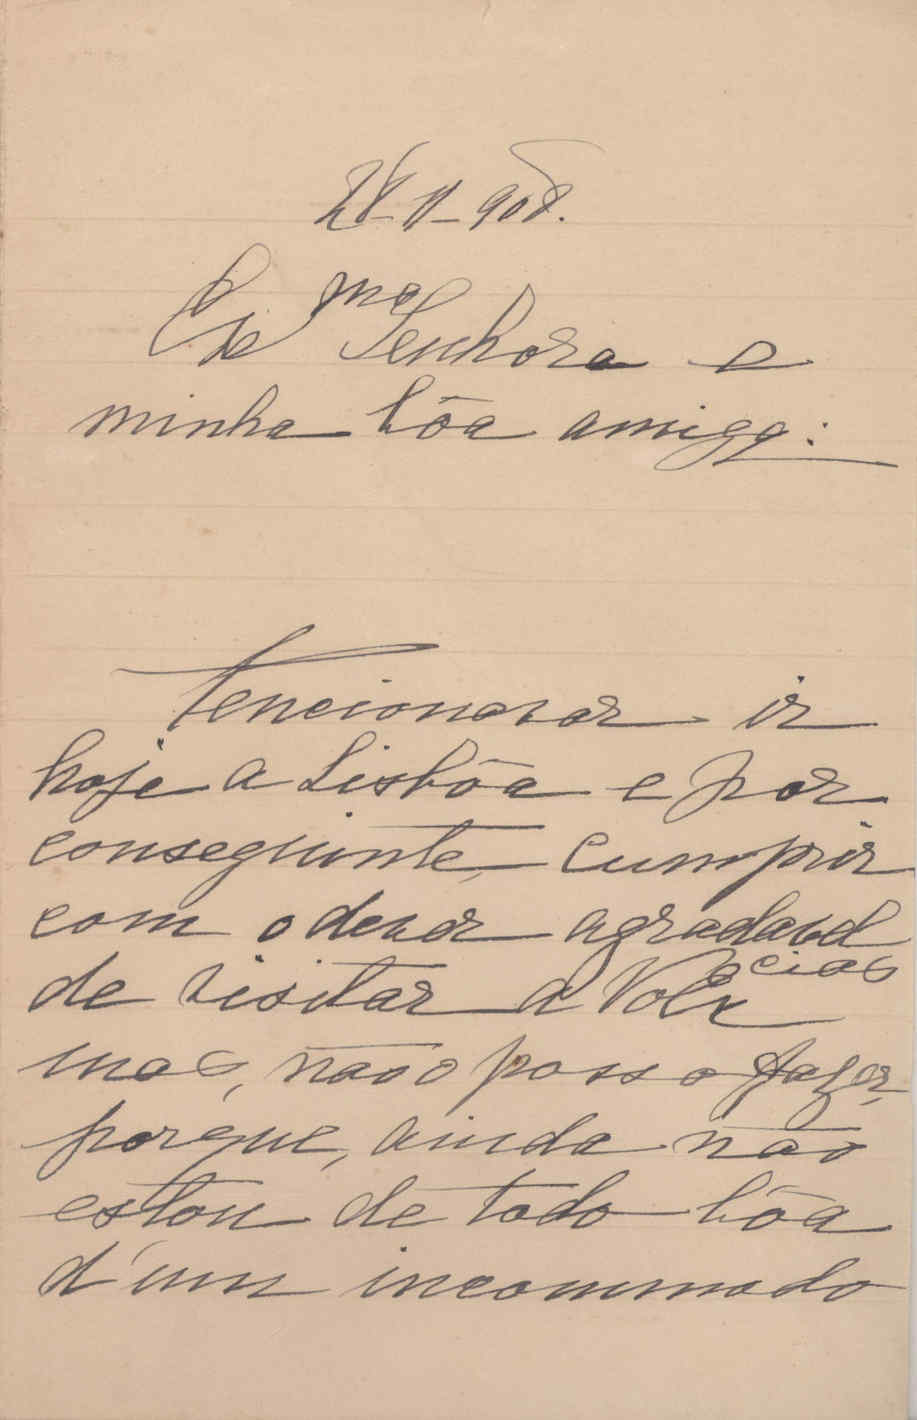 28-11-908.
Exma Senhora e
minha bôa amiga:
Tencionava ir
hoje a Lisbôa e por
conseguinte, cumprir
com o dever agradavel
de visitar a VoExcias
mas, não o posso fazer,
porque, ainda não
estou de todo bôa
d'um incommodo